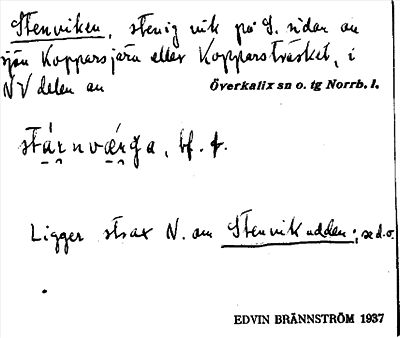 Stenviken, stenig vik på S. sidan av
sjön Kopparsjärv eller Kopparsträsket, i
NV delen av Överkalix sn o. tg Norrb. l.
bf. f.
Ligger strax N. om Stenvikudden; se d.o.
EDVIN BRÄNNSTRÖM 1937